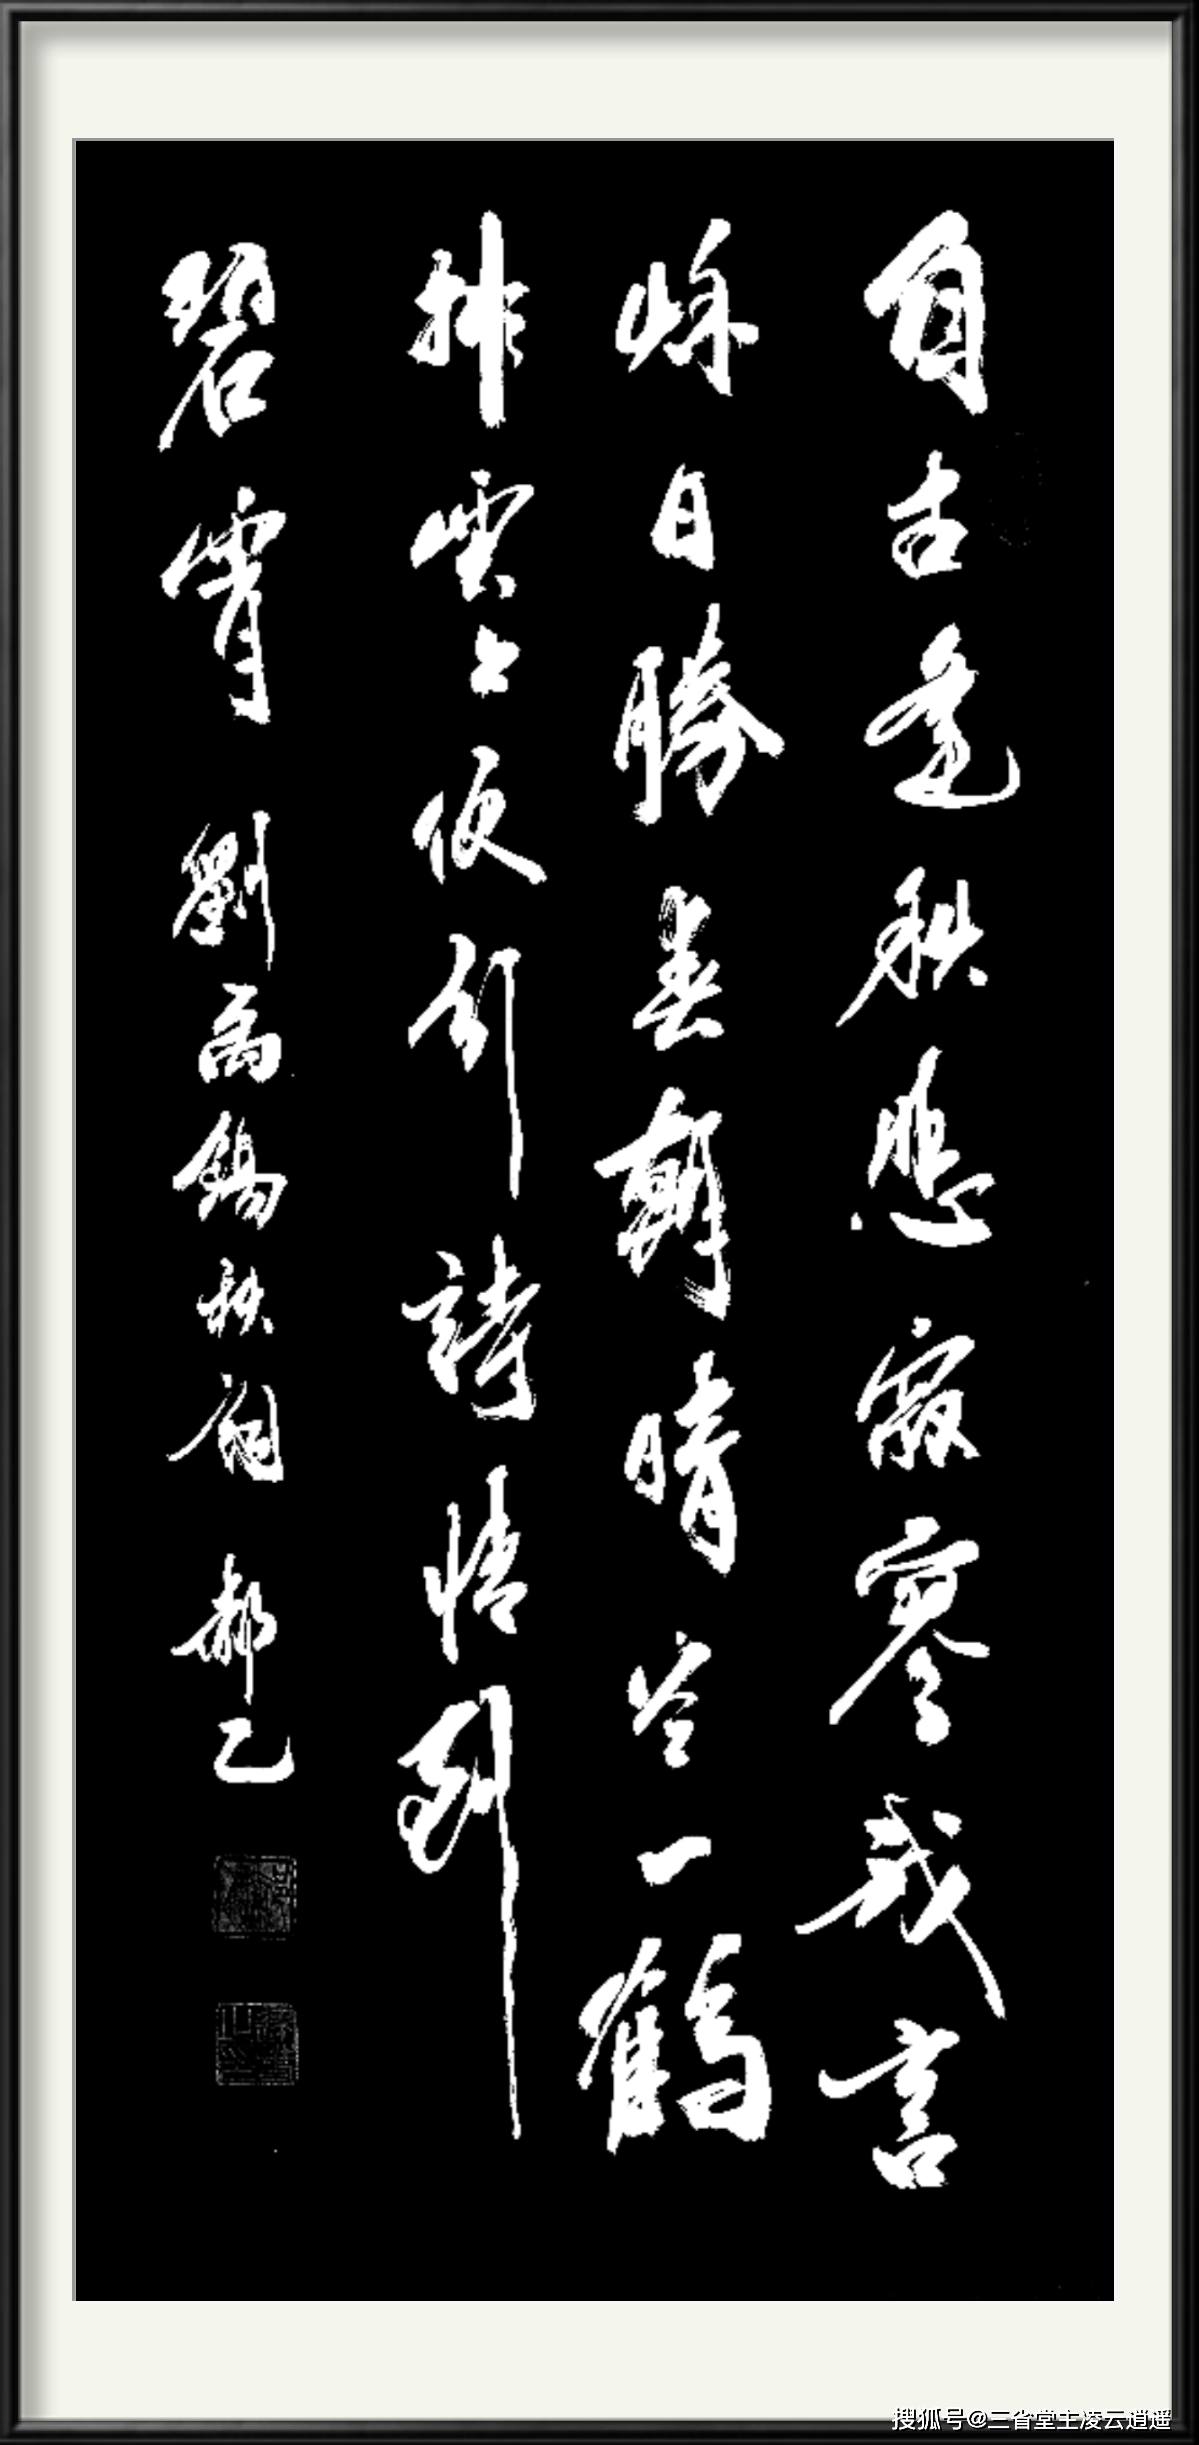 自古逢秋悲寂寥我言
秋日勝春朝晴空一鶴
排雲上便引詩情到
碧霄 劉禹錫秋詞
搜狐号@三省堂主凌云逍遥